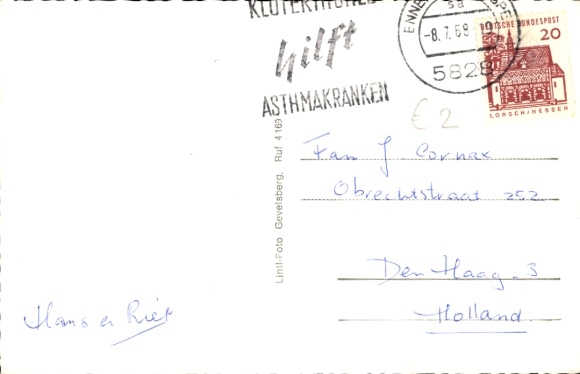 hilft
ASTHMAKRANKEN
-8.7.68
5828
DEUTSCHE BUNDESPOST
20
LORSCH/HESSEN
€ 2
Lintl-Foto Gevelsberg, Ruf 4169
Fam J. Cornax
Obrechtstraat 252
Den Haag-3
Holland
Hans en Riet